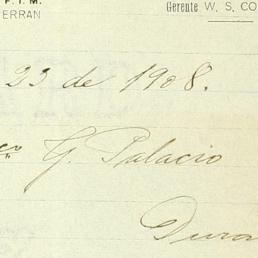 P. I. M.
ERRAN
Gerente W. S. CO
23 de 1908.
G. Palacio
Dura